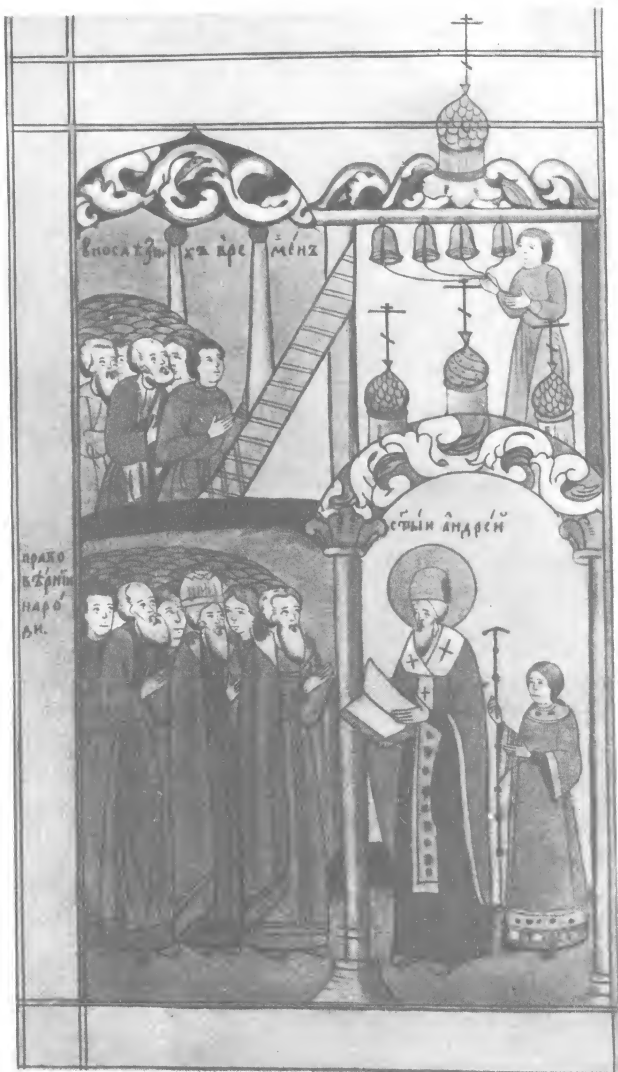 впослѣдни хъ вре мéнъ
ст҃ы́и а҆ндре́й
право
вѣ́рнїи
наро́
ди.